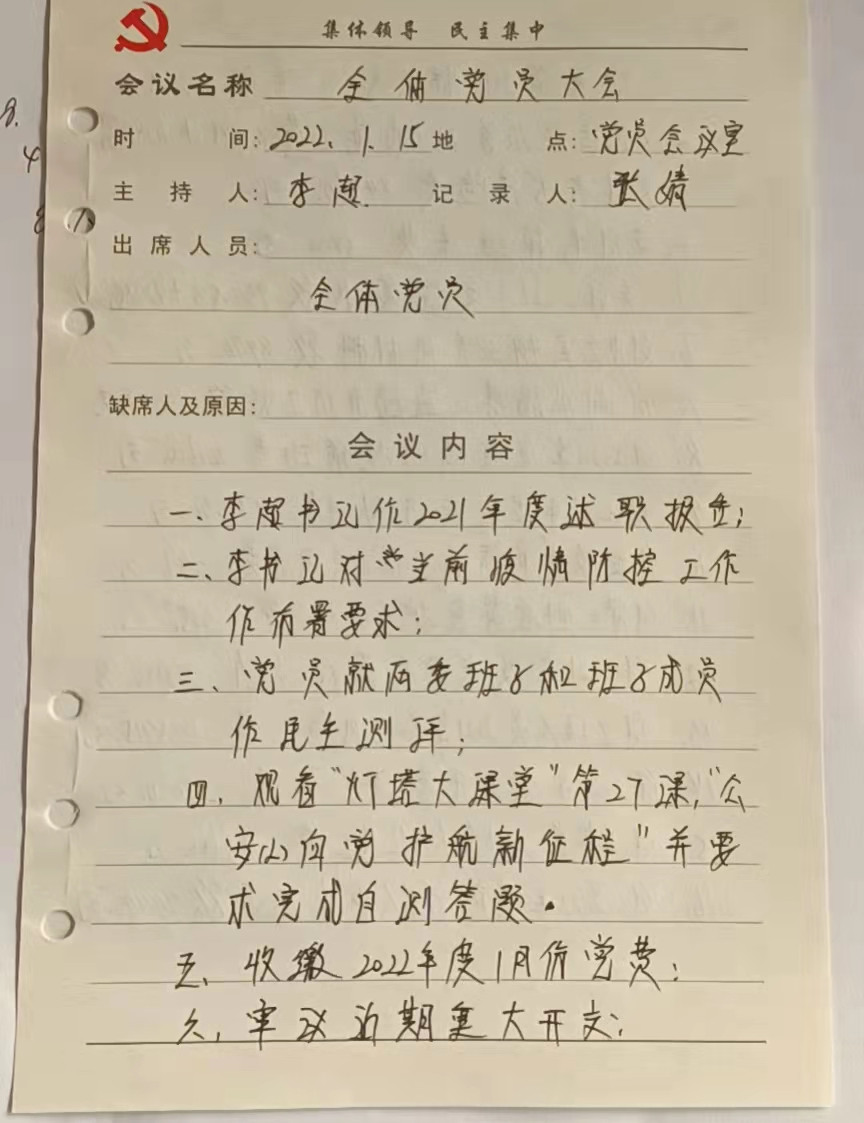 集体领导 民主集中
会议名称 全体党员大会
时 间: 2022.1.15 地 点: 党员会议室
主 持 人: 李超. 记 录 人: 张婧
出 席 人 员:
全体党员
缺席人及原因:
会议内容
一、李超书记作2021年度述职报告;
二、李书记对当前疫情防控工作
作布署要求;
三、党员就两委班子和班子成员
作民主测评;
四、观看“灯塔大课堂”第27课,“公
安心向党 护航新征程”并要
求完成自测答题.
五、收缴2022年度1月份党费;
六、审议近期重大开支;